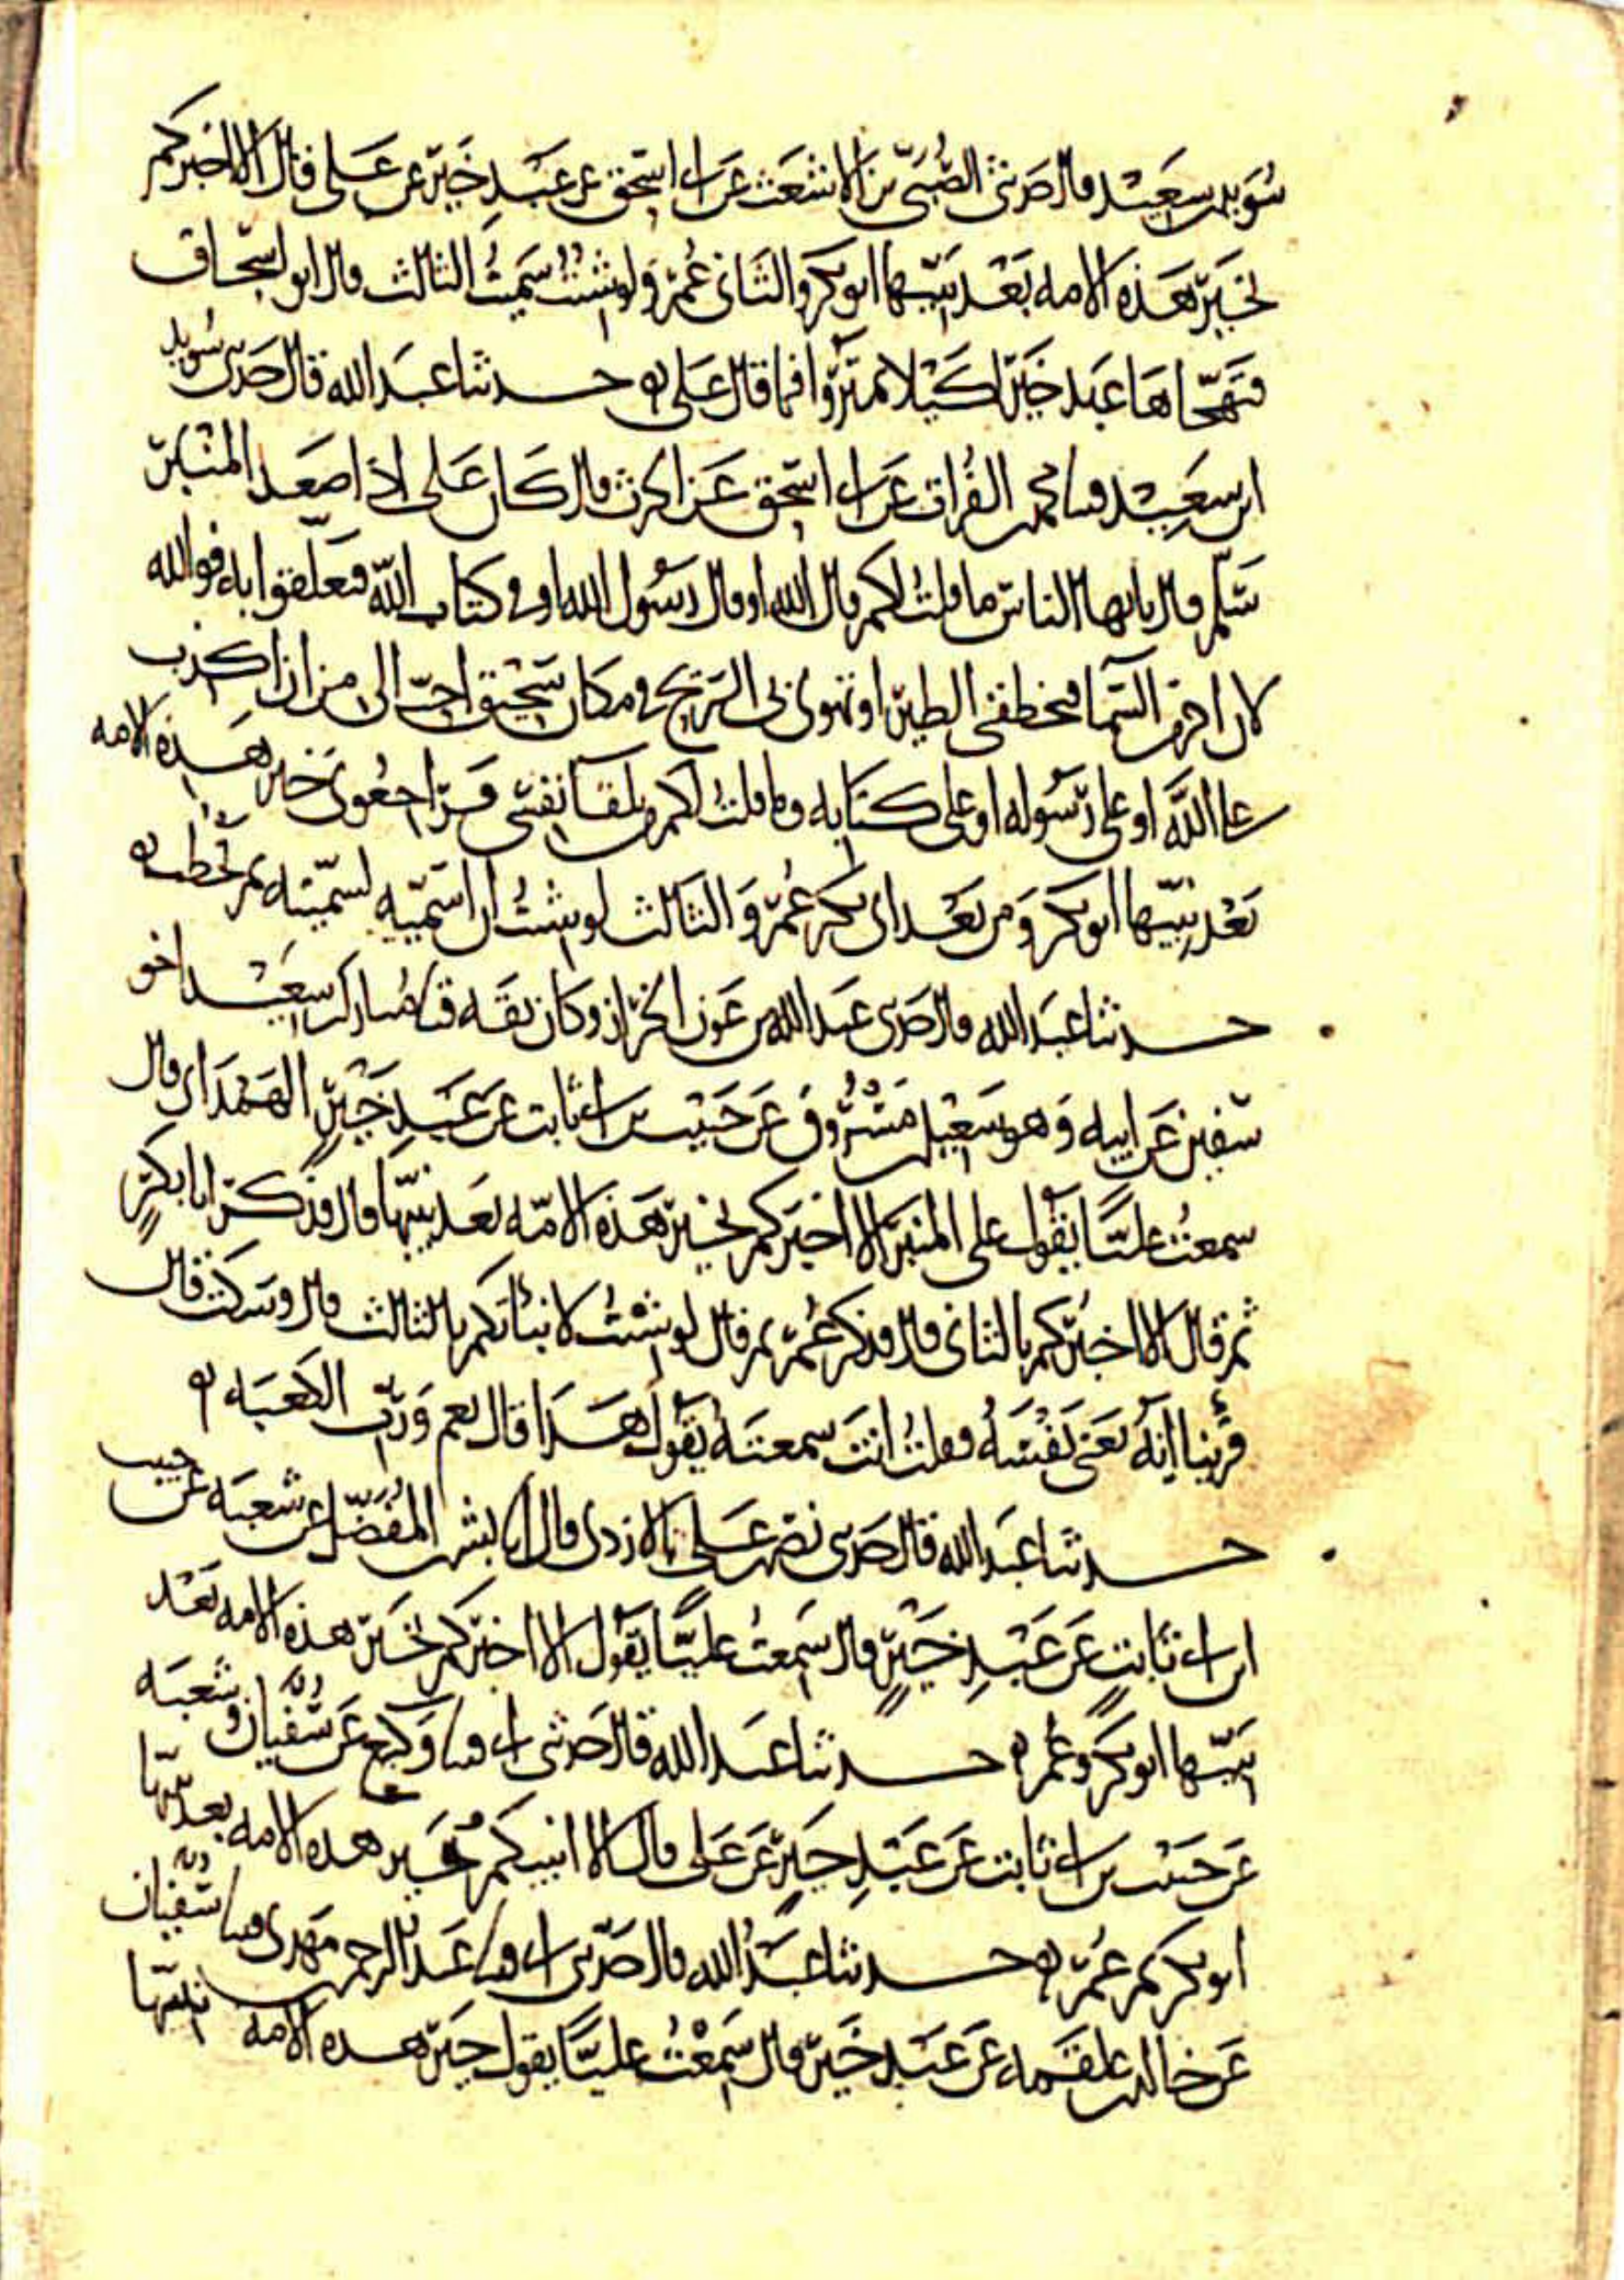 سويد بن سعيد قال حدثني الصبي بن الاشعث عن ابي اسحق عن عبد خير عن على قال الا اخبركم
بخير هذه الامه بعد نبيها ابو بكر والثاني عمر ولو شئت سميت الثالث قال ابو اسحاق
فتهجاها عبد خير لكيلا تمتروا فيما قال على حدثنا عبد الله قال حدثني سويد
ابن سعيد قثنا محمد الفرات عن ابي اسحق عن الحرث قال كان على اذا صعد المنبر
سلم قال يا ايها الناس ما قلت لكم قال الله او قال رسول الله او في كتاب الله فتعلقوا به فوالله
لان اخر من السما فتخطفني الطير او تهوى بي الريح في مكان سحيق احب الى من ان اكذب
على الله او على رسوله او على كتابه وما قلت لكم من تلقا نفسي خير هذه الامه
بعد نبيها ابو بكر ومن بعد ابي بكر عمر والثالث لو شئت ان اسميه لسميته
حدثنا عبد الله قال حدثني عبد الله بن عون الخراز وكان ثقه قثنا مبارك بن سعيد اخو
سفين عن ابيه وهو سعيد بن مسروق عن حبيب بن ابي ثابت عن عبد خير الهمداني قال
سمعت عليًا يقول على المنبر الا اخبركم بخير هذه الامه بعد نبيها قال فذكر ابا بكرٍ
ثم قال الا اخبركم بالثاني قال فذكر عمر ثم قال لو شئت لانبأتكم بالثالث قال وسكت قال
فرينا انه يعني نفسه فقلت انت سمعته يقول هذا قال نعم ورب الكعبه
حدثنا عبد الله قال حدثني نصر بن على الازدي قال انا بشر بن المفضل عن شعبه عن حبيب
ابن ابي ثابتٍ عن عبد خيرٍ قال سمعت عليًا يقول الا اخبركم بخير هذه الامه بعد
نبيها ابو بكر وعمر حدثنا عبد الله قال حدثني ابي قثنا وكيع عن سفيان وشعبه
عن حبيب بن ابي ثابت عن عبد خيرٍ عن على قال الا انبيكم بخير هذه الامه بعد نبيها
ابو بكر ثم عمر حدثنا عبد الله قال حدثني ابي قثنا عبد الرحمن بن مهدي قثنا سفيان
عن خالد بن علقمه عن عبد خير قال سمعت عليًا يقول خير هذه الامه نبيها